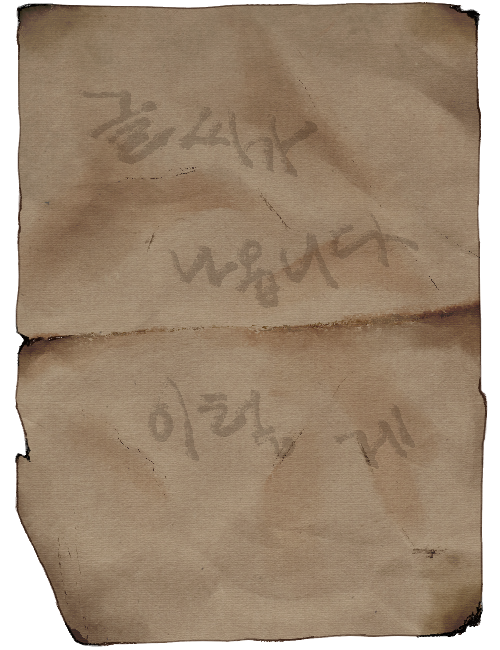 글씨가
나옵니다
이렇게